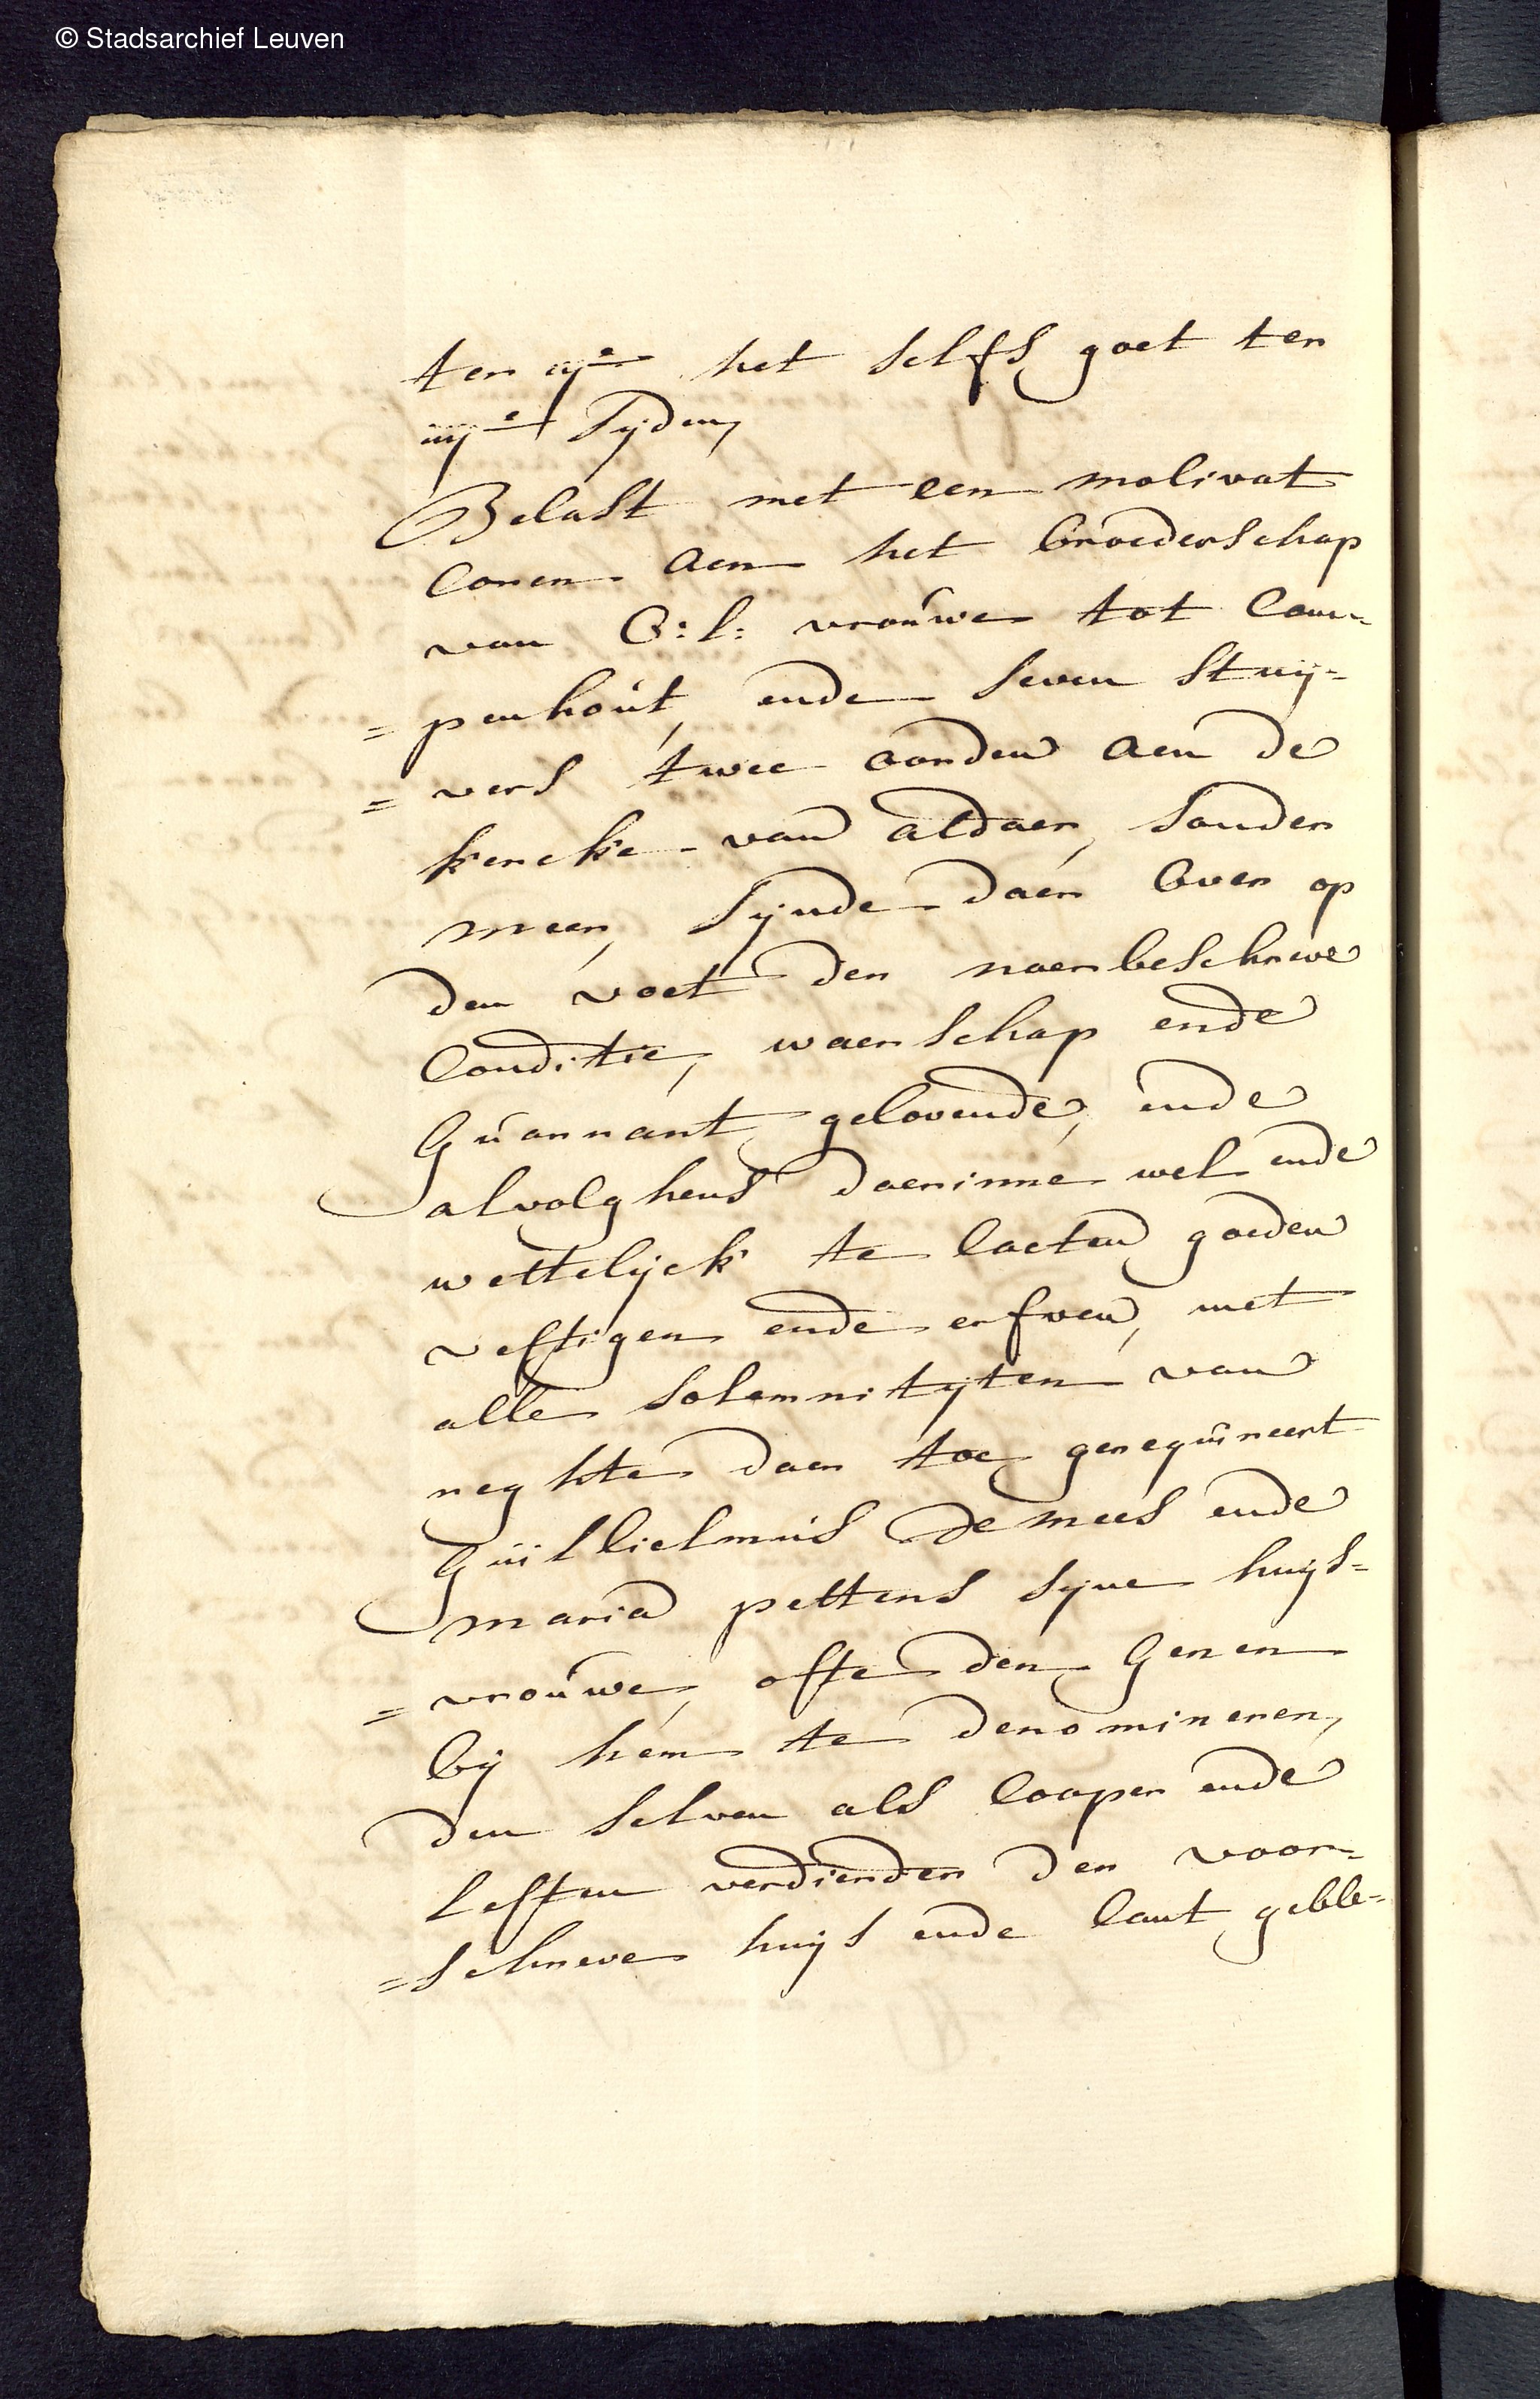 © Stadsarchief Leuven
ter ij.e het selfs goet ter
iij.e Syden,
Belast met een molivat
coren aen het broederschap
van O: l: vrouwe tot Cam-
= penhout, ende seven stuij-
= vers twee oorden aen de
kercke van aldaer, sonder
meer, Sijnde daer over op
den voet der naerbeschreve
Conditie, waerschap ende
Guarrant gelovende, ende
alvolghens daerinne wel ende
wettelijck te laeten goeden
vestigen ende erfven, met
alle solemnitijten van
reghte daer toe gerequireert
Guillielmus De mees ende
maria pettens syne huijs=
= vrouwe, ofte den Genen
by hem te denomineren,
den selven als cooper ende
lesten verdierder der voor=
= schreve huijs ende lant geble=